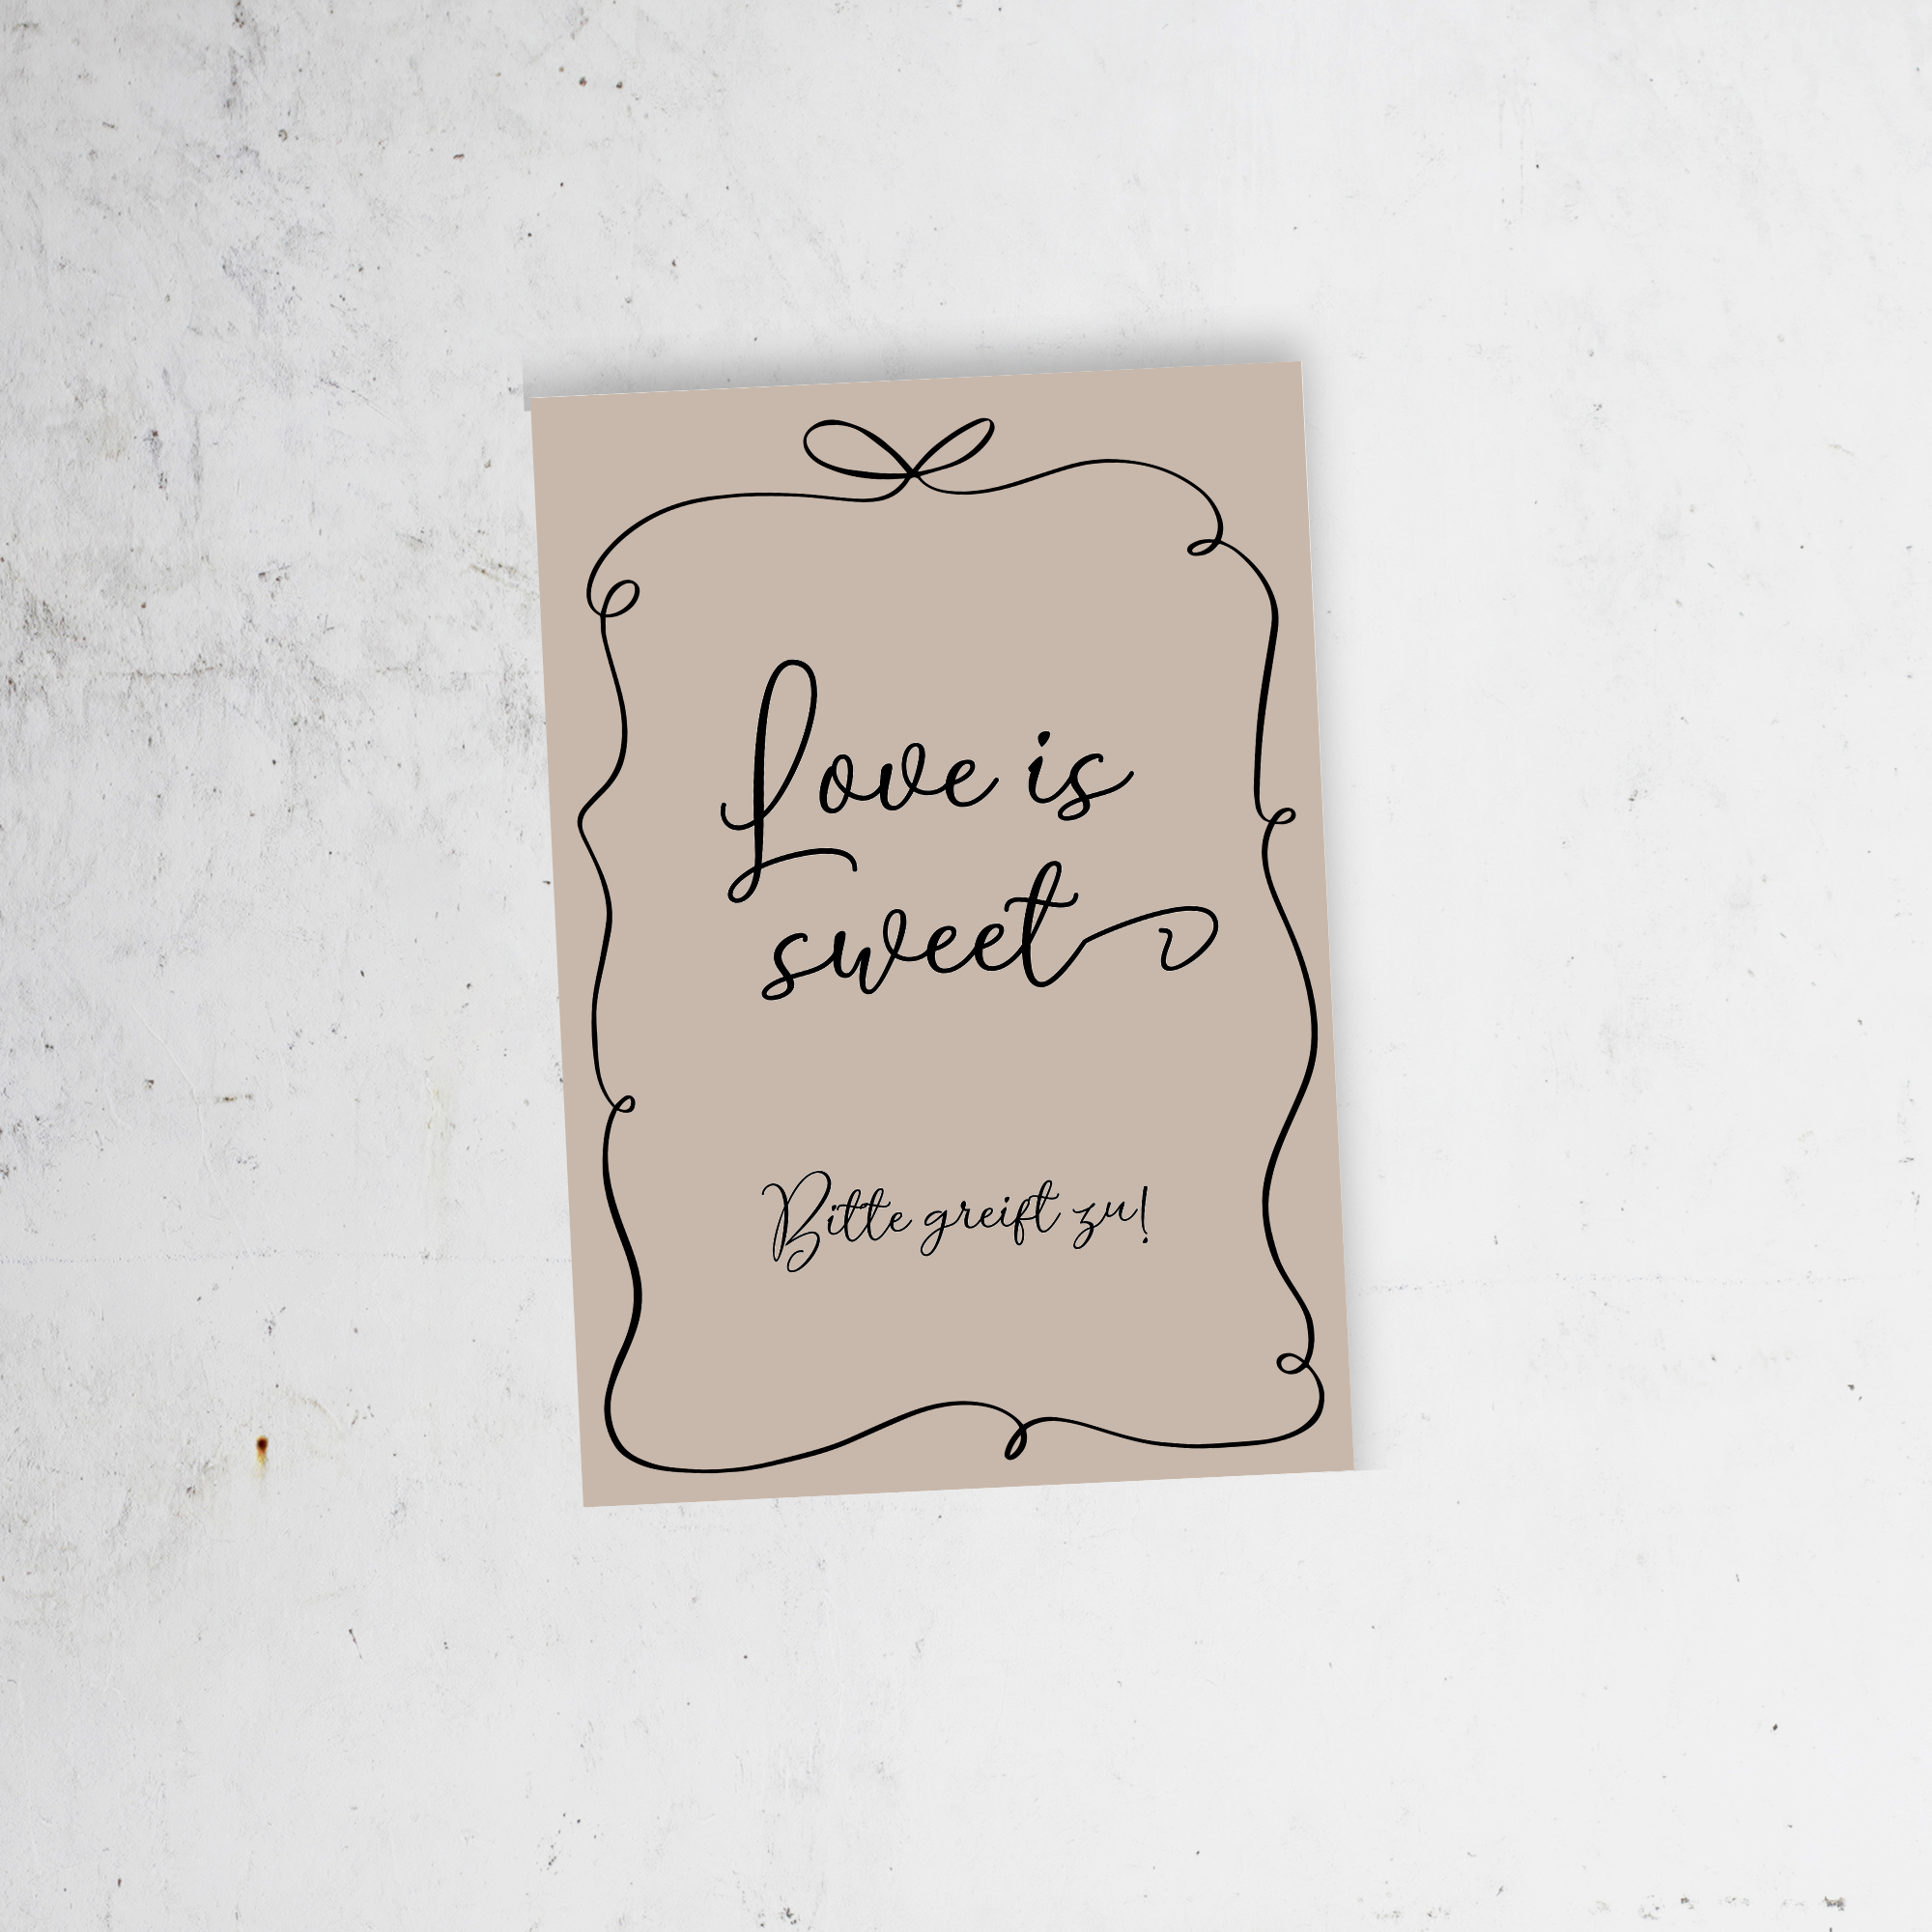 Love is
sweet
Bitte greift zu!